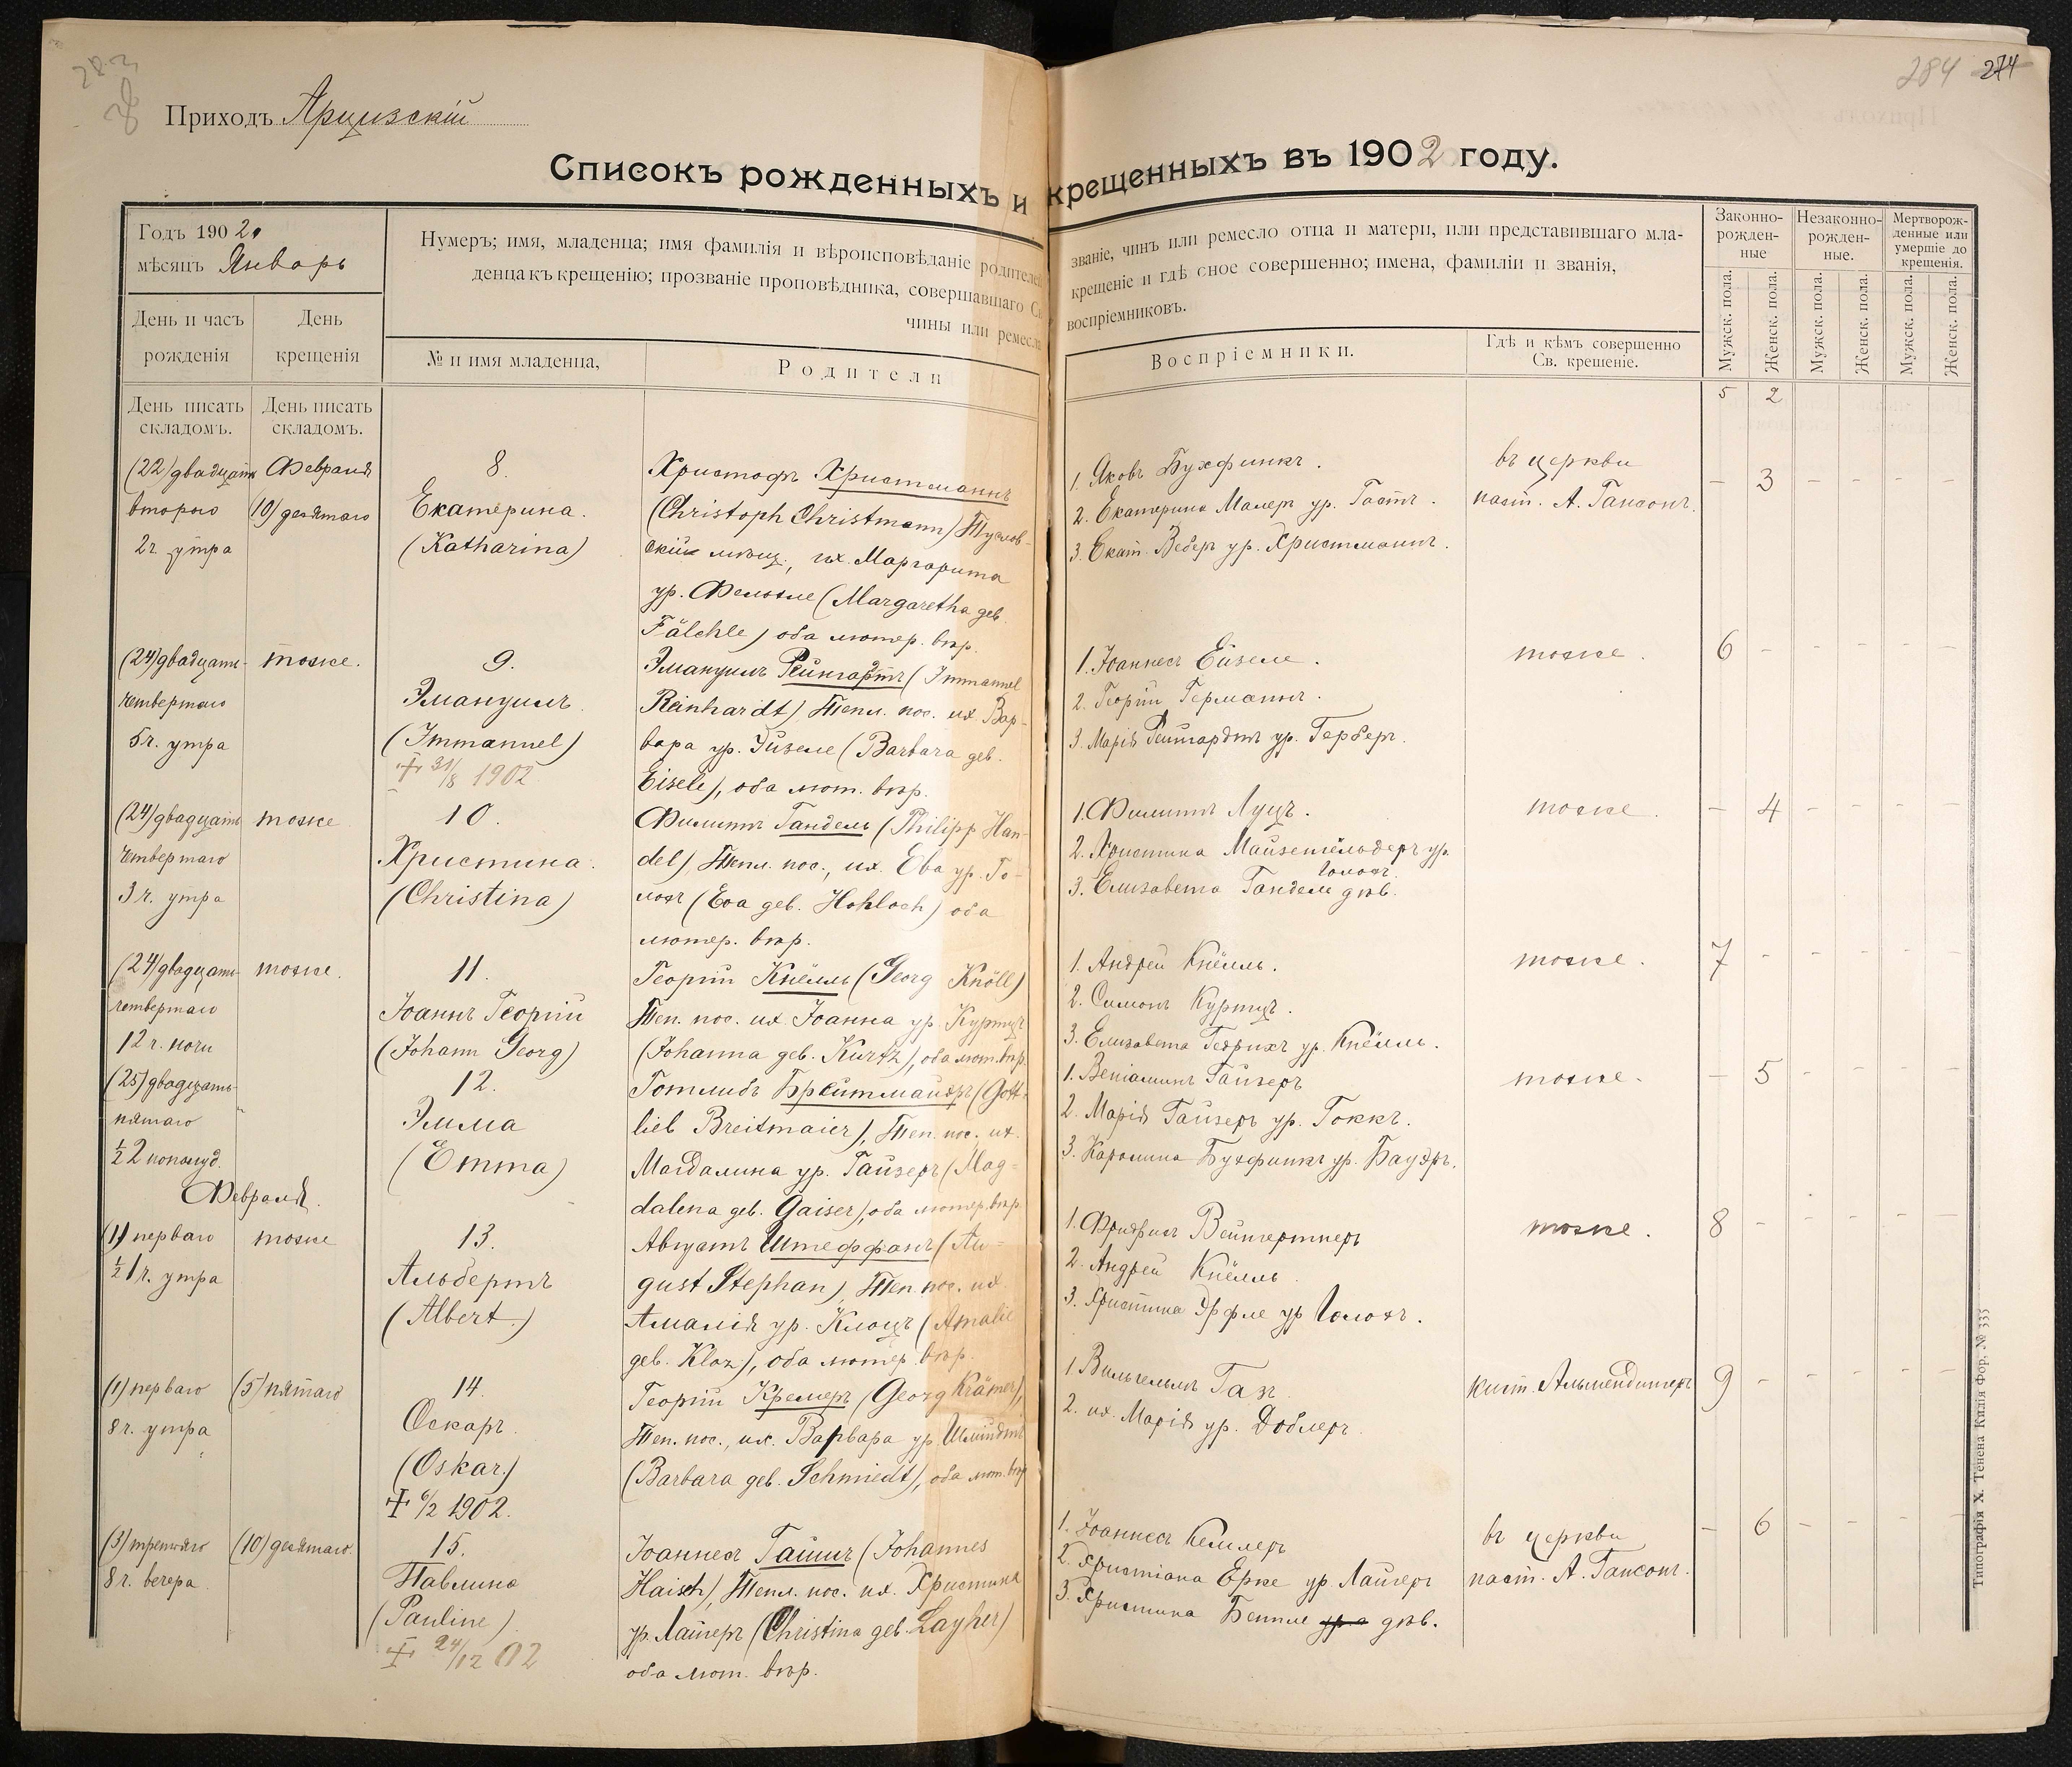 284 274
Приходъ Арцизскій
Списокъ рожденныхъ и крещенныхъ въ 1902 году.
Годъ 1902.
мѣсяцъ Январь
День и часъ рожденія
День крещенія
Нумеръ; имя, младенца; имя фамилія и вѣроисповѣданіе родителей
денца къ крещенію; прозваніе проповѣдника, совершавшаго Св
чины или ремесла
№ и имя младенца,
Родители
званіе, чинъ или ремесло отца и матери, или представившаго мла-
крещеніе и гдѣ оное совершенно; имена, фамиліи и званія,
воспріемниковъ.
Воспріемники.
Гдѣ и кѣмъ совершенно
Св. крещеніе.
Законно-
рожден-
ные
Незаконно-
рожден-
ные.
Мертворож-
денные или
умершіе до
крещенія.
Мужск. пола.
Женск. пола.
Мужск. пола.
Женск. пола.
Мужск. пола.
Женск. пола.
День писать
складомъ.
День писать
складомъ.
5 2
(22) двадцать
второго
2 ч. утра
Февраля
(10) десятаго
8.
Екатерина.
(Katharina)
Христофъ Христманнъ
(Christoph Christmann) Тузлов-
скій мѣщ., их. Маргарита
ур. Фельхле (Margaretha geb.
Fälchle) оба лютер. вѣр.
1. Яковъ Бухфинкъ.
2. Екатерина Малеръ ур. Гастъ.
3. Екат. Веберъ ур. Христманнъ.
въ церкви
паст. А. Гансонъ.
- 3 - - - -
(24) двадцать-
четвертаго
5 ч. утра
тоже.
9.
Эмануилъ.
(Immanuel)
† 31/8 1902
Эмануилъ Рейнгардтъ (Immanuel
Reinhardt) Тепл. пос. их. Вар-
вара ур. Эйзеле (Barbara geb.
Eisele), оба лют. вѣр.
1. Іоаннесъ Ейзеле.
2. Георгій Германнъ.
3. Марія Рейнгардтъ ур. Герберъ.
тоже.
6 - - - - -
(24) двадцать
четвертаго
3 ч. утра
тоже
10.
Христина.
(Christina)
Филиппъ Гандель (Philipp Han-
del) Тепл. пос., их. Ева ур. Го-
лохъ (Eva geb. Hohloch) оба
лютер. вѣр.
1. Филиппъ Луцъ.
2. Христина Майзенгёльдеръ ур.
Голохъ.
3. Елизавета Гандель дѣв.
тоже.
- 4 - - - -
(24) двадцать-
четвертаго
12 ч. ночи
тоже.
11.
Іоаннъ Георгій
(Johann Georg)
Георгій Кнёлль (Georg Knöll)
Теп. пос. их. Іоанна ур. Куртцъ
(Johanna geb. Kurtz), оба лют. вѣр.
1. Андрей Кнёлль.
2. Симонъ Куртцъ.
3. Елизавета Гедрихъ ур. Кнёлль.
тоже.
7 - - - - -
(25) двадцать-
пятаго
½ 2 пополуд.
"
12.
Эмма
(Emma)
Готлибъ Брейтмайеръ (Gott-
lieb Breitmaier), Теп. пос. их.
Магдалина ур. Гайзеръ (Mag-
dalena geb. Gaiser), оба лютер. вѣр
1. Веніаминъ Гайзеръ
2. Марія Гайзеръ ур. Гоккъ.
3. Каролина Бухфинкъ ур. Бауэръ.
тоже.
- 5 - - - -
Февраля.
(1) перваго
½ 1 ч. утра
тоже
13.
Альбертъ
(Albert.)
Августъ Штеффанъ (Au-
gust Stephan), Теп. пос. их.
Амалія ур. Клоцъ (Amalie
geb. Kloz), оба лютер. вѣр.
1. Фридрихъ Вейнгертнеръ
2. Андрей Кнёлль.
3. Христина Эрфле ур Голохъ.
тоже.
8 - - - - -
(1) перваго
8 ч. утра
(5) пятаго
14.
Оскаръ.
(Oskar.)
† 6/2 1902.
Георгій Кремеръ (Georg Krämer),
Теп. пос., их. Варвара ур. Шмидтъ
(Barbara geb. Schmiedt), оба лют. вѣр
1 Вильгельмъ Газъ
2. их. Марія ур. Доблеръ.
кист. Альмендингеръ
9 - - - - -
(3) третьяго
8 ч. вечера.
(10) десятаго.
15.
Павлина
(Pauline)
† 24/12 02
Іоаннесъ Гайшъ (Johannes
Haisch), Тепл. пос. их. Христина
ур. Лайеръ (Christina geb. Layher)
оба лют. вѣр.
1. Іоаннесъ Кемлеръ
2. Христіана Ерке ур. Лайеръ
3. Христина Бейтле дѣв.
въ церкви
паст. А. Гансонъ.
- 6 - - - -
Типографія Х. Тёнена Килія Фор. № 333